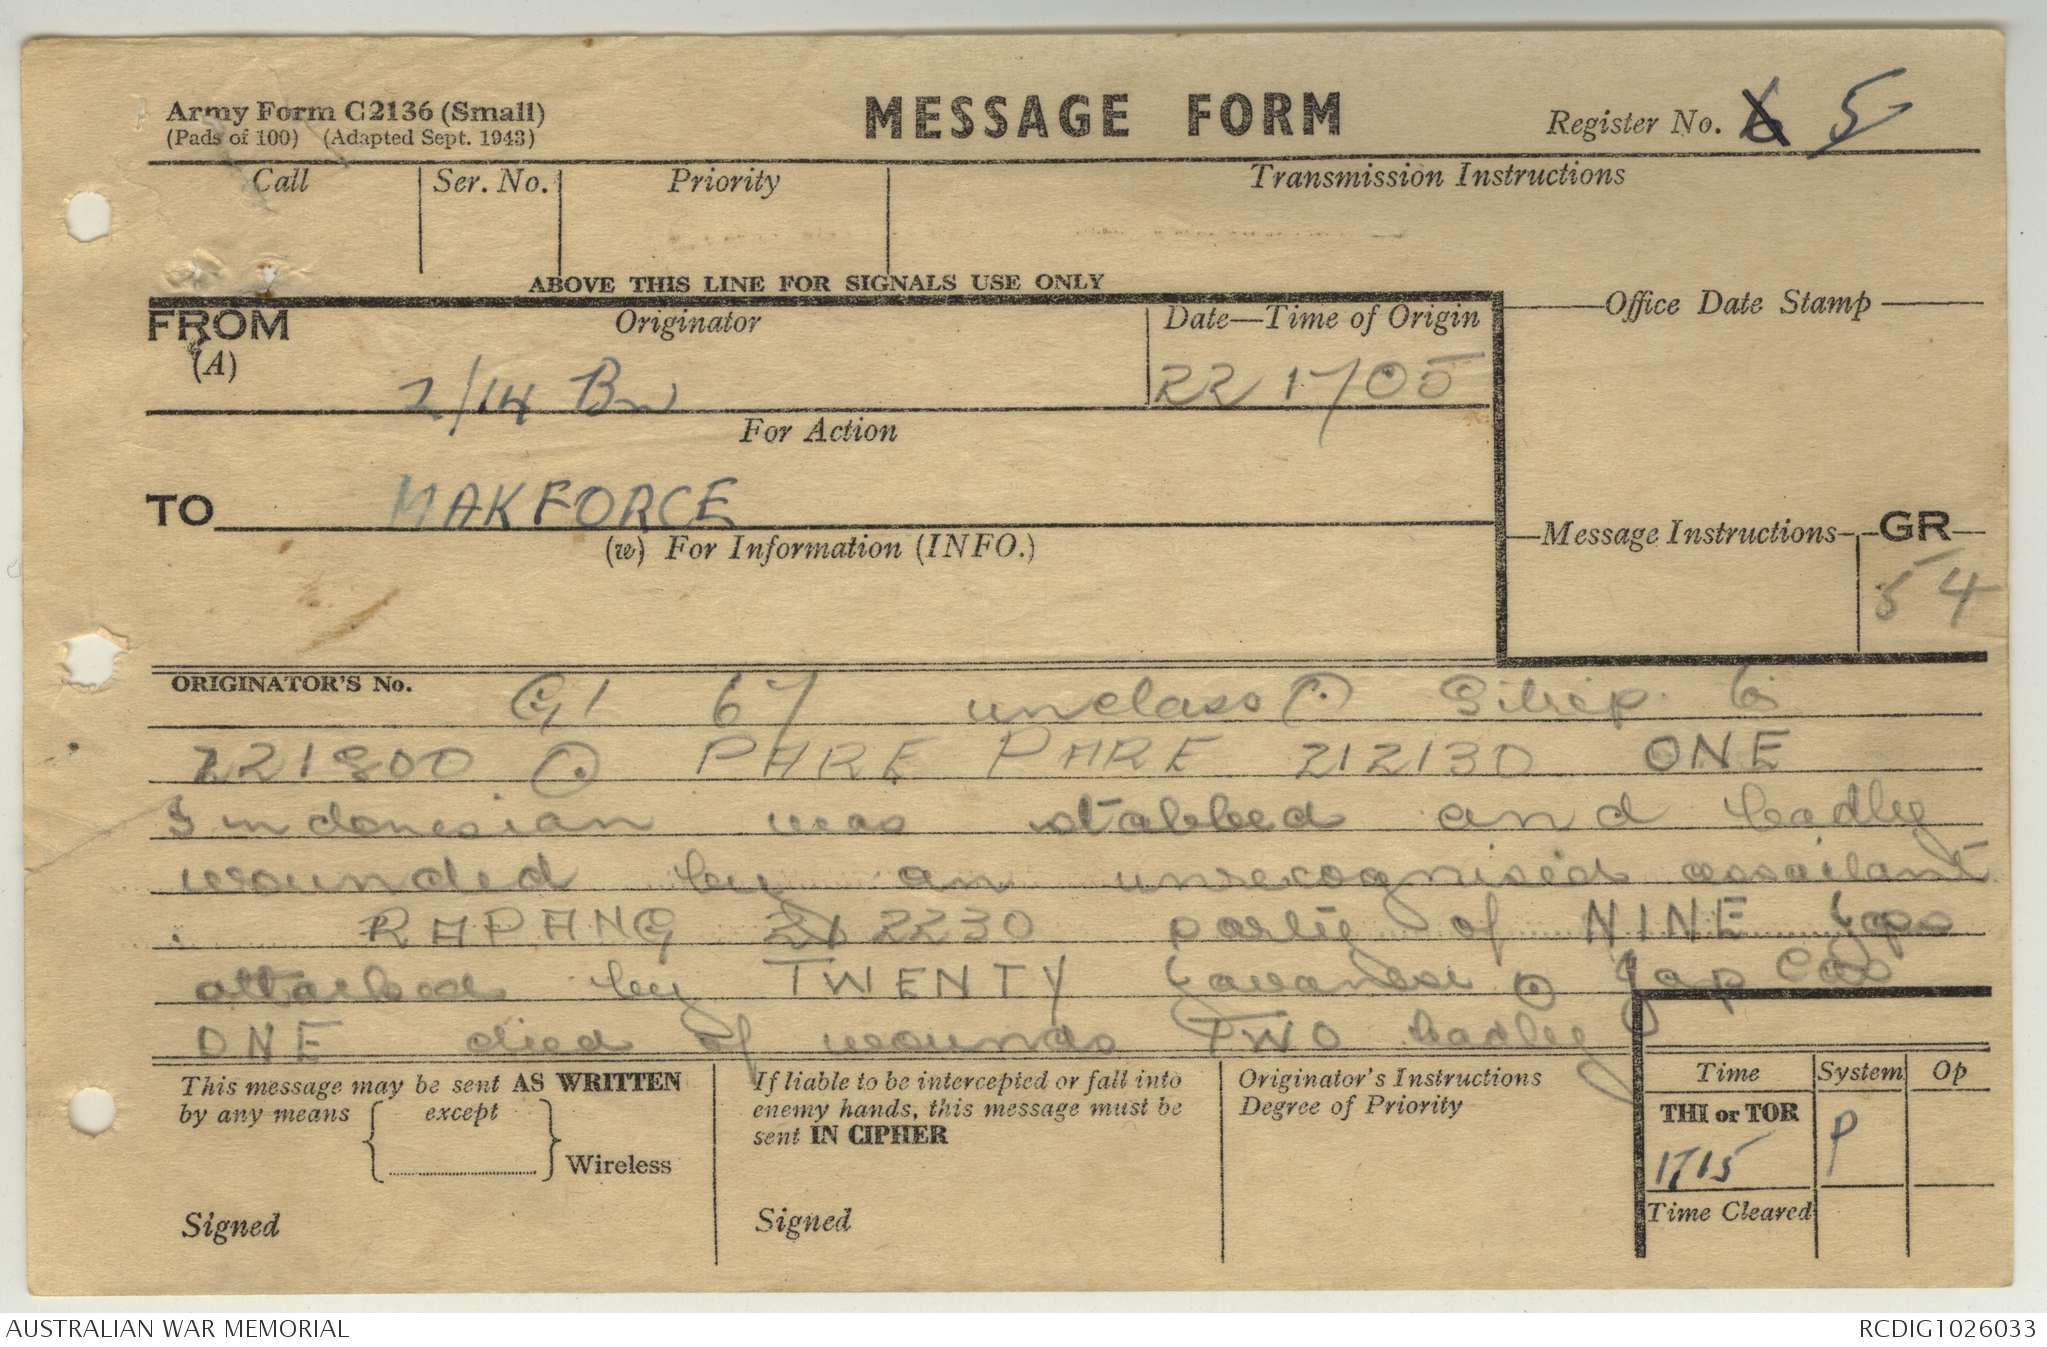 Army Form C2136 (Small)
(Pads of 100) (Adapted Sept. 1943)
MESSAGE FORM
Register No. 6 5
Call
Ser. No.
Priority
Transmission Instructions
ABOVE THIS LINE FOR SIGNALS USE ONLY
FROM
(A)
Originator
Date—Time of Origin
Office Date Stamp
2/14 Bn
221705
For Action
TO
MAKFORCE
(w) For Information (INFO.)
Message Instructions
GR
54
ORIGINATOR'S No.
G1 67 unclass ⊙ Sitrep to
221800 ⊙ PARE PARE 212130 ONE
Indonesian was stabbed and badly
wounded by an unrecognised assailant
. RAPANG 212230 party of NINE Japs
attacked by TWENTY Javanese ⊙ Jap Cas
ONE died of wounds TWO badly
This message may be sent AS WRITTEN
by any means except
Wireless
Signed
If liable to be intercepted or fall into
enemy hands, this message must be
sent IN CIPHER
Signed
Originator's Instructions
Degree of Priority
Time
System
Op
THI or TOR
1715
P
Time Cleared
AUSTRALIAN WAR MEMORIAL
RCDIG1026033